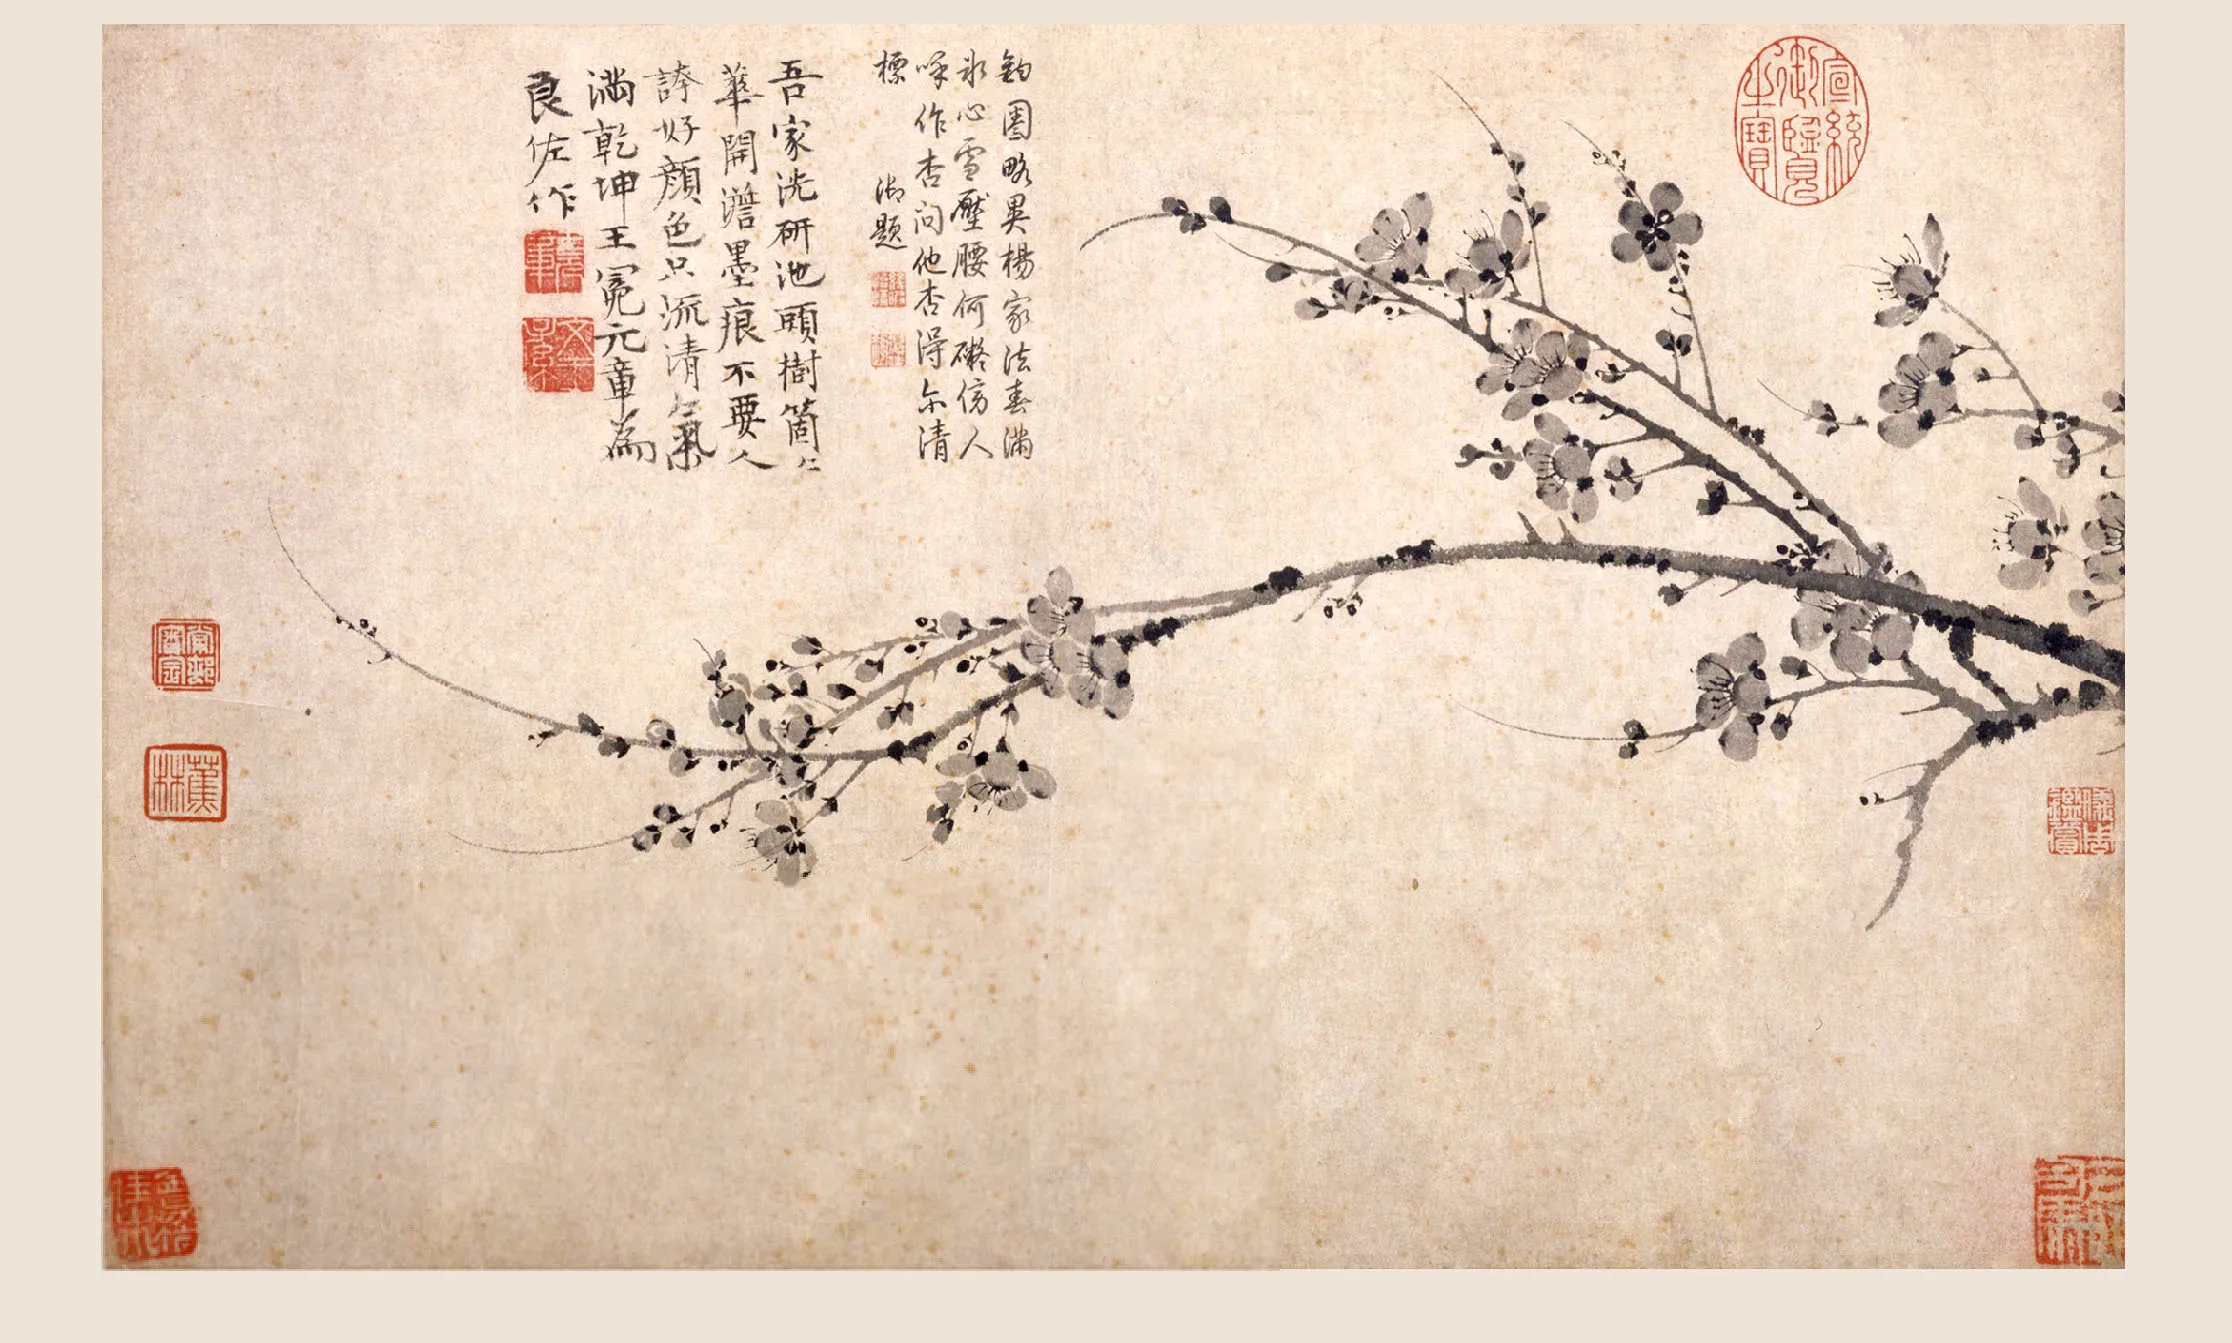 宣統御覽之寶
鈎圈略異楊家法春滿
氷心雪壓腰何礙傍人
呼作杏問他杏得尒清
標
御題
吾家洗研池頭樹箇〻
華開澹墨痕不要人
誇好顏色只流清氣
滿乾坤王冕元章為
良佐作
蕉林